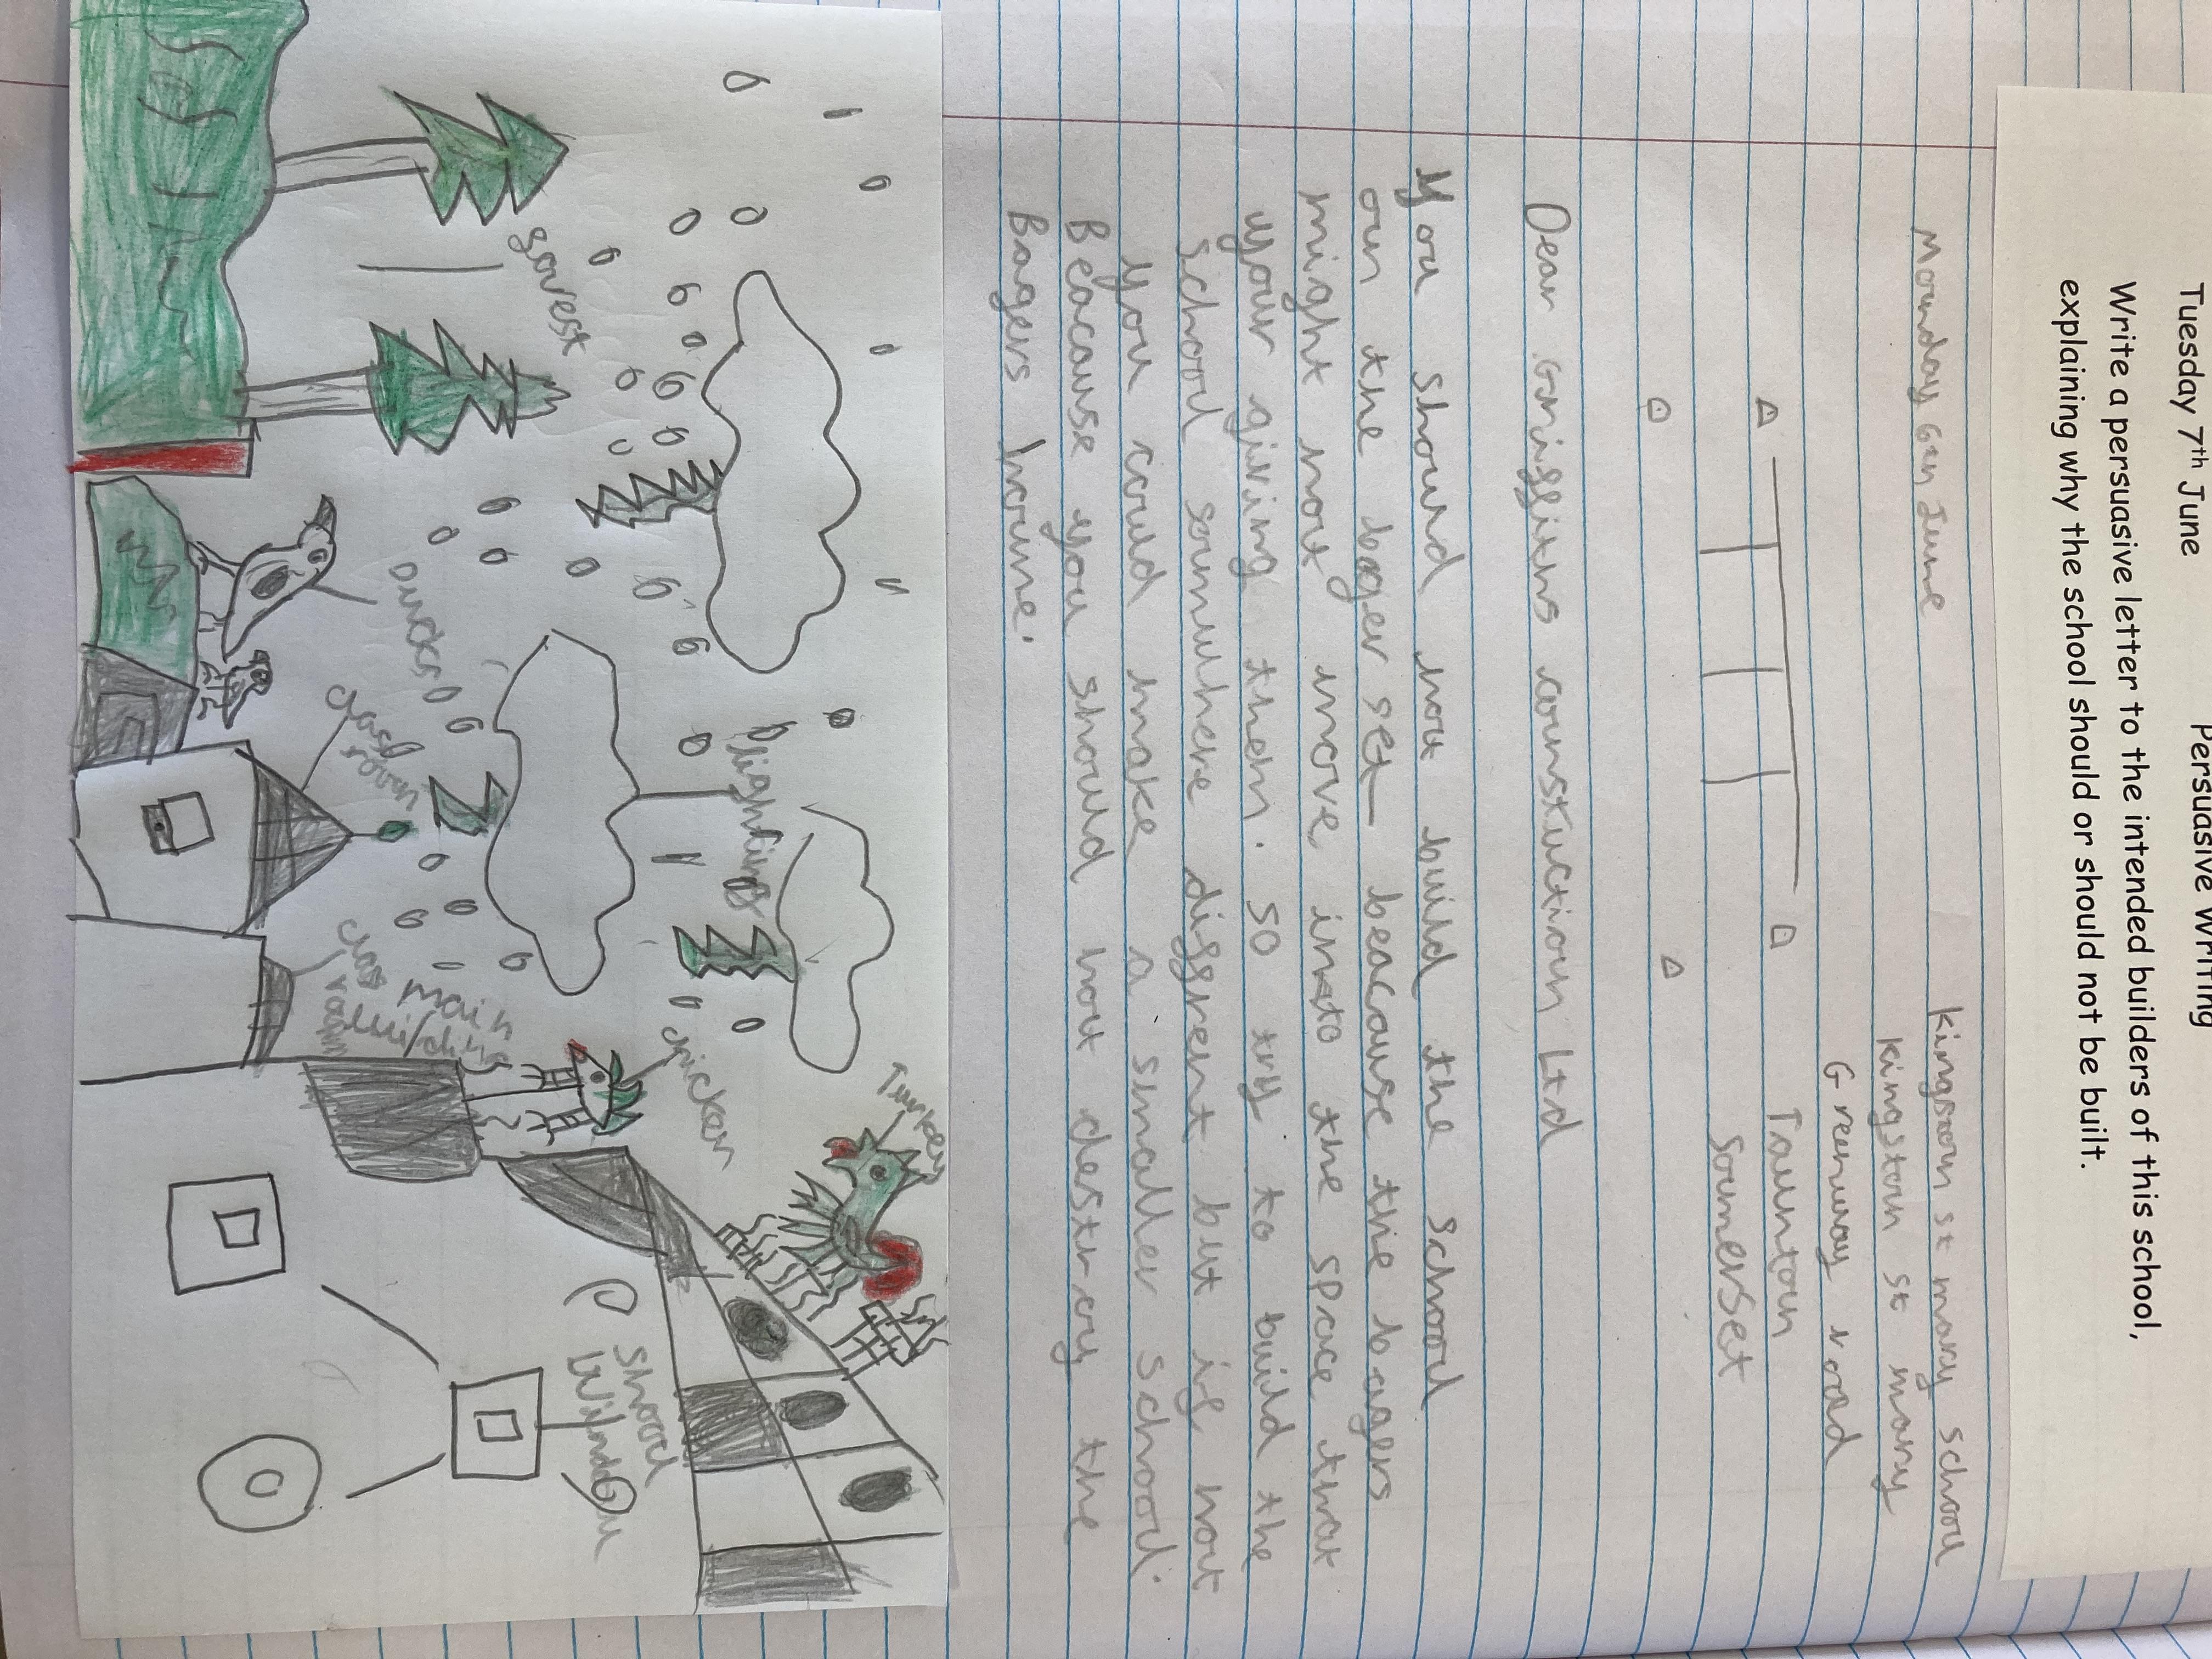 Tuesday 7th June Persuasive Writing
Write a persuasive letter to the intended builders of this school,
explaining why the school should or should not be built.
Mounday 6th June
Kingstorn st mary school
Kingstorn st mary
Greenway road
Tauntorn
Somerset
Dear Griffiths counstuction Ltd
You should not build the school
oun the bager set beacause the bagers
might not move into the space that
your giving them. so try to build the
school soumwhere diffrent but if not
you could make a smaller school.
Beacause you should not destroy the
Bagers houme.
forest
Ducks
class room
lighting
class room
main building
chicken
Turkey
Shool
Window